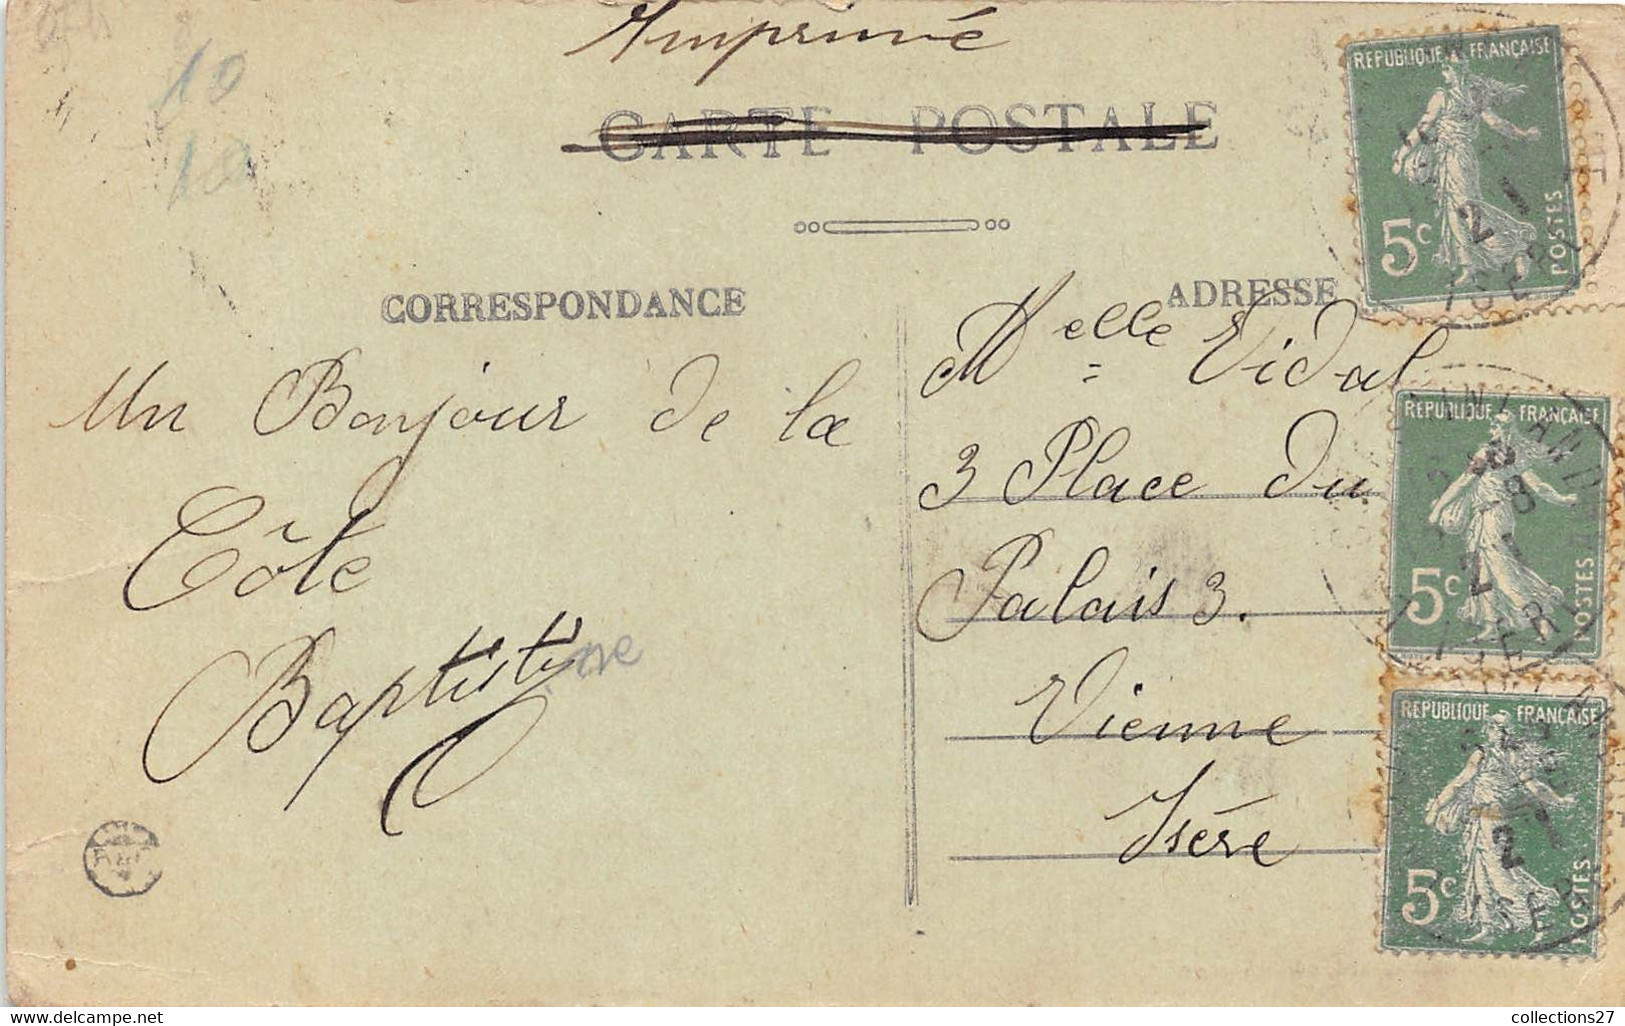 Imprimé
CARTE POSTALE
CORRESPONDANCE
ADRESSE
Un Bonjour de la
Côte
Baptistine
Melle Vidal
3 Place du
Palais 3.
Vienne
Isère
10
10
REPUBLIQUE FRANÇAISE
5c
POSTES
2
ISERE
REPUBLIQUE FRANÇAISE
5c
POSTES
ISERE
REPUBLIQUE FRANÇAISE
5c
POSTES
ISERE
collections27